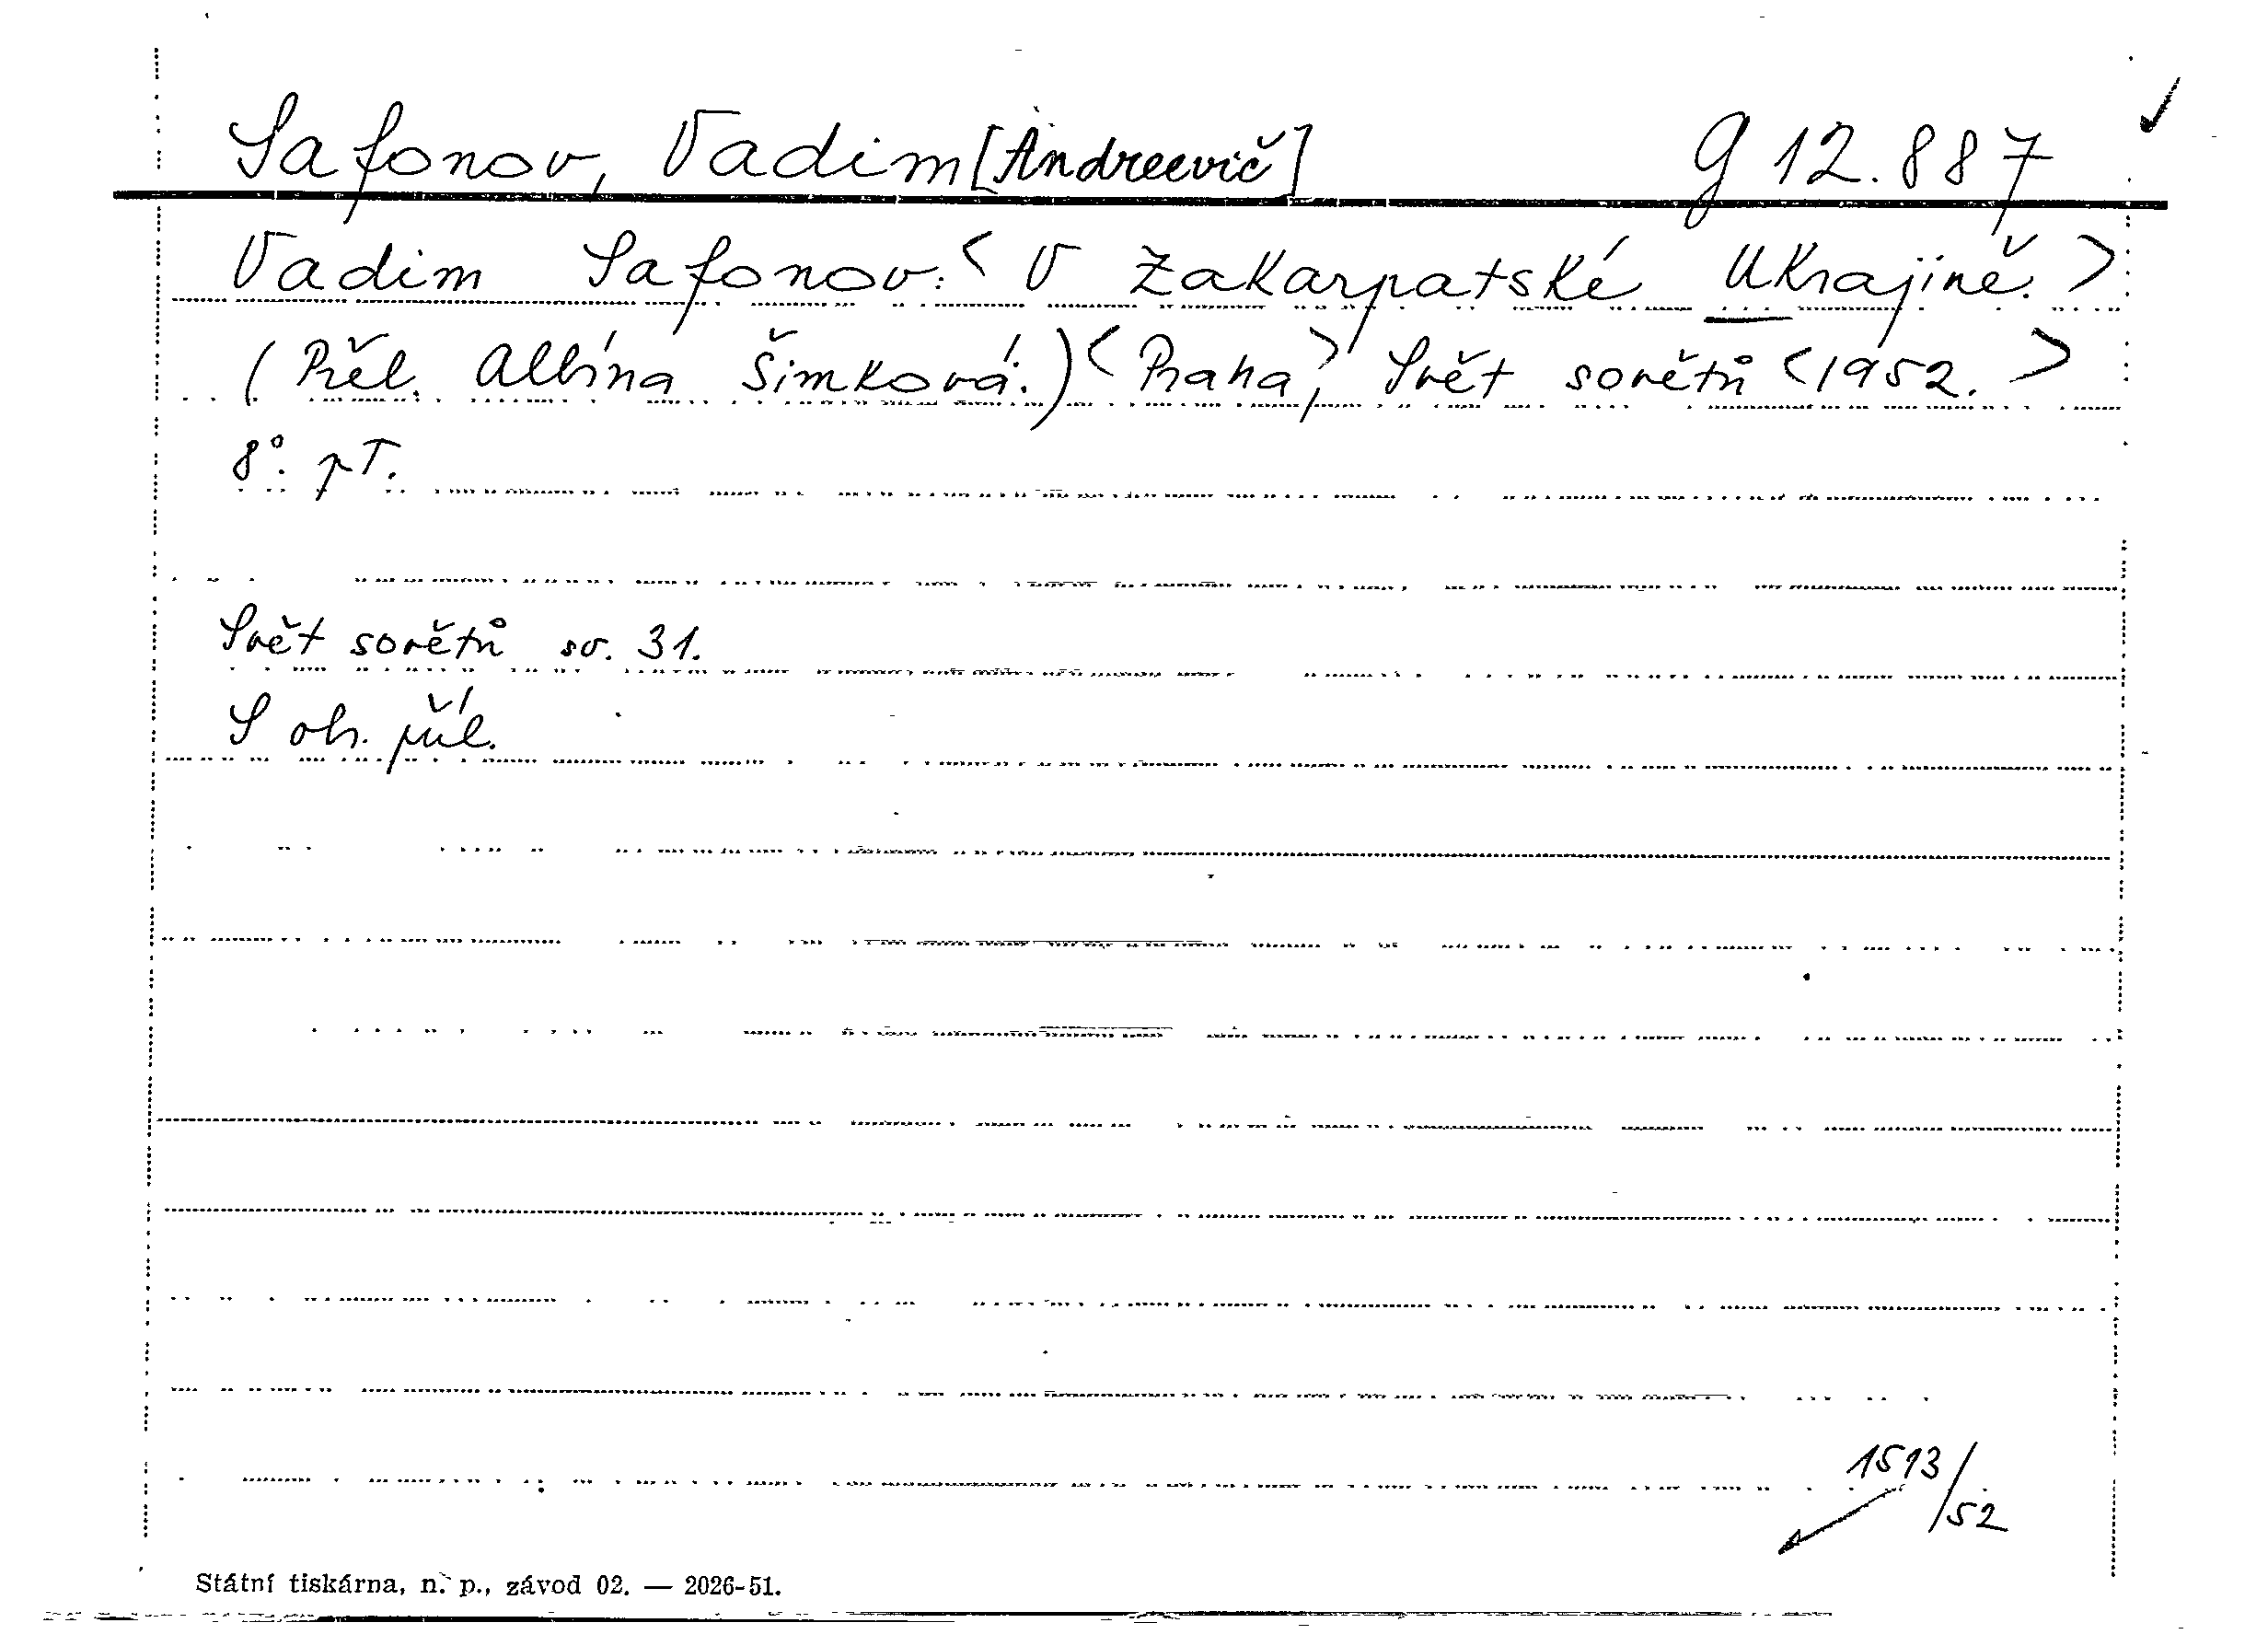 Safonov, Vadim [Andreevič] G 12.887
Vadim Safonov: < V Zakarpatské Ukrajině. >
(Přel. Albína Šimková.) < Praha, > Svět sovětů < 1952. >
8°. pT.
Svět sovětů sv. 31.
S obr. příl.
1513/52
Státní tiskárna, n. p., závod 02. — 2026-51.